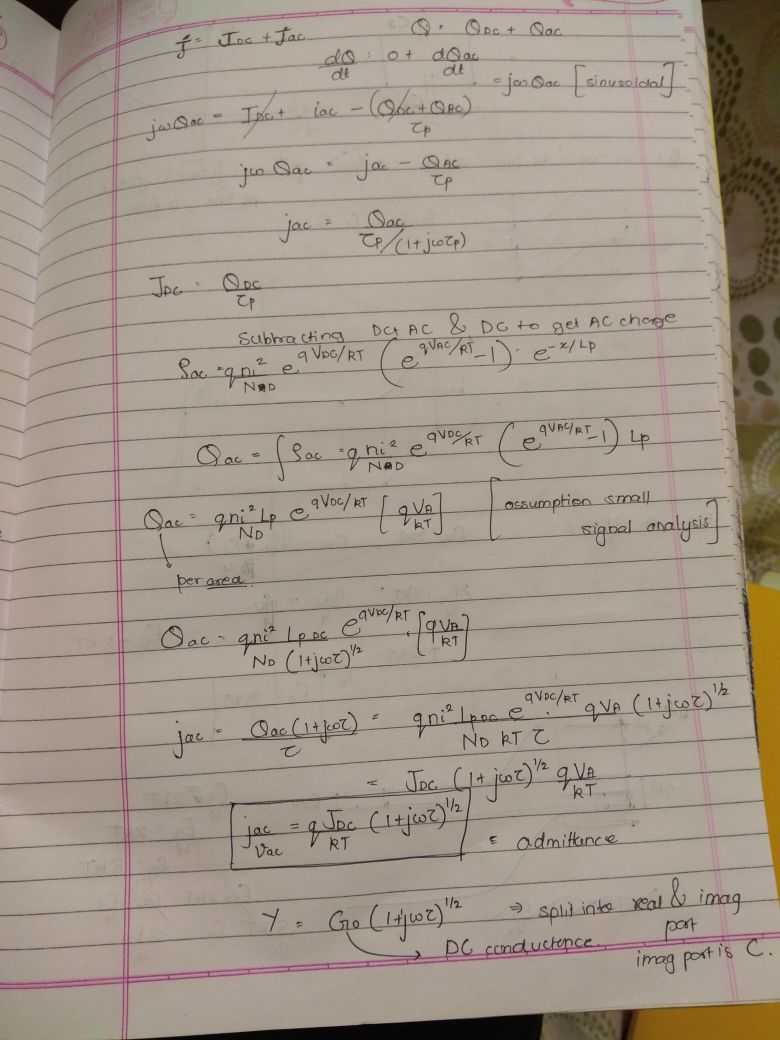 j = J_DC + j_ac    Q = Q_DC + Q_ac
dQ/dt = 0 + dQ_ac/dt
= jωQ_ac [sinusoidal]
jωQ_ac = J_DC + i_ac − (Q_DC + Q_AC)/τ_p
jω Q_ac = j_ac − Q_AC/τ_p
j_ac = Q_ac/(τ_p/(1+jωτ_p))
J_DC = Q_DC/τ_p
Subtracting DC+AC & DC to get AC charge
ρ_ac = qn_i²/N_D e^{qV_DC/kT} (e^{qV_AC/kT} − 1) · e^{−x/L_p}
Q_ac = ∫ρ_ac = qn_i²/N_D e^{qV_DC/kT} (e^{qV_AC/kT} − 1) L_p
Q_ac = qn_i² L_p/N_D e^{qV_DC/kT} [qV_A/kT] [assumption small
signal analysis]
per area.
Q_ac = qn_i² L_{p DC}/(N_D (1+jωτ)^{1/2}) e^{qV_DC/kT} · [qV_A/kT]
j_ac = Q_ac(1+jωτ)/τ = qn_i² L_{pDC} e^{qV_DC/kT} · qV_A (1+jωτ)^{1/2}/(N_D kT τ)
= J_DC (1+jωτ)^{1/2} qV_A/kT
j_ac/V_ac = qJ_DC/kT (1+jωτ)^{1/2} = admittance
Y = G_0 (1+jωτ)^{1/2} ⇒ split into real & imag
part
DC conductence.
imag part is C.